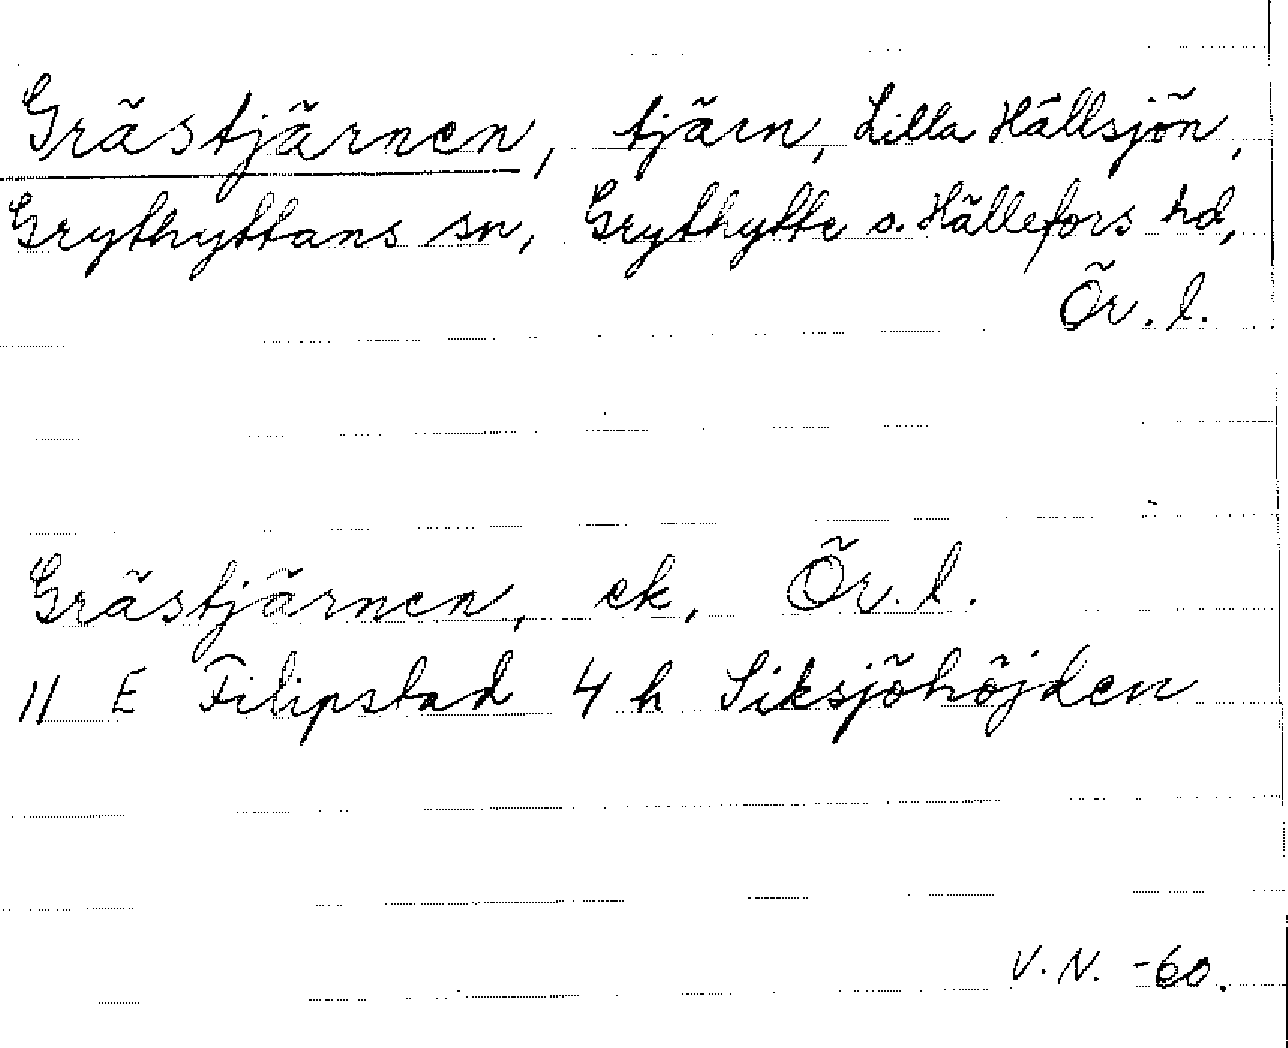 Grästjärnen, tjärn, Lilla Hällsjön,
Grythyttans sn, Grythytte o. Hällefors hd,
Ör. l.
Grästjärnen, ek, Ör. l.
11 E Filipstad 4 h Siksjöhöjden
V. N. -60.